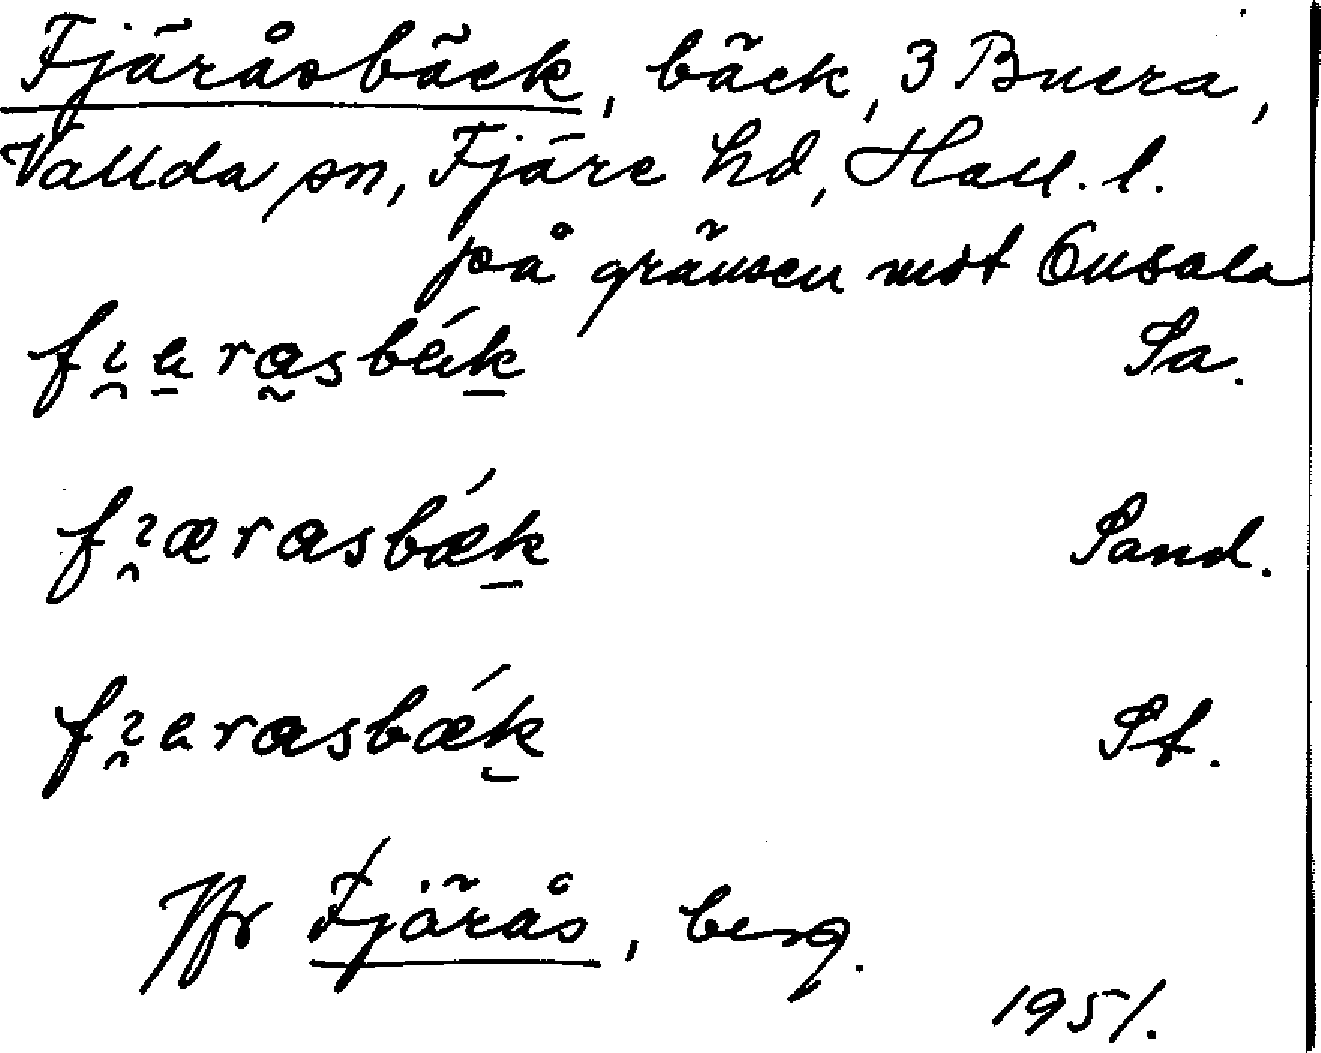 Fjäråsbäck, bäck, 3 Buera,
Vallda sn, Fjäre hd, Hall. l.
på gränsen mot Onsala
Sa.
fı̯ærasbǽk Sand.
St.
Jfr Fjärås, berg.
1951.